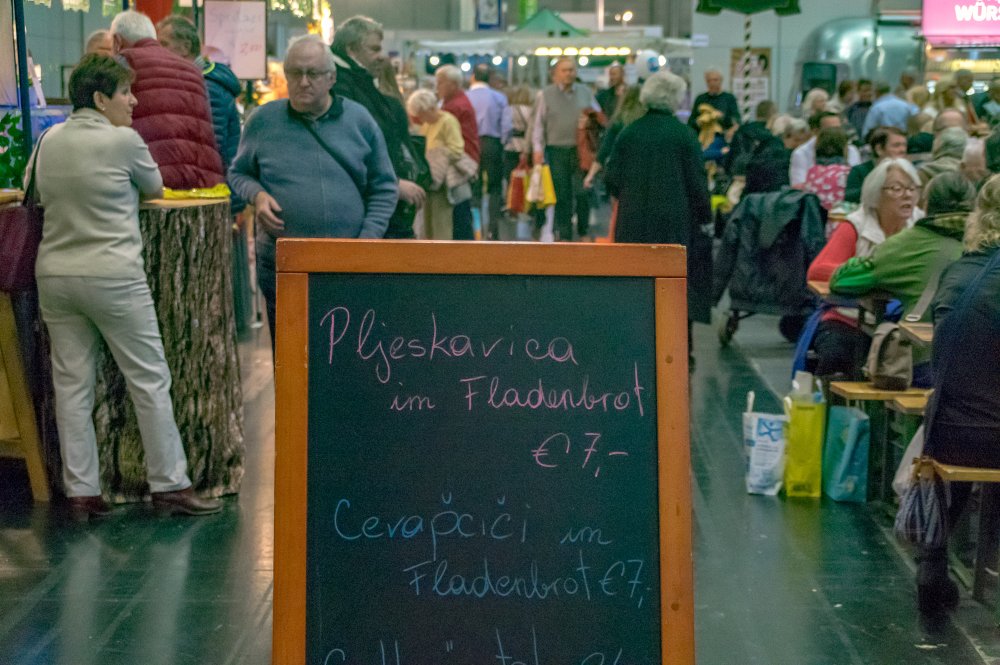 Pljeskavica
im Fladenbrot
€ 7,-
Cevapčiči im
Fladenbrot € 7,-
WÜRS